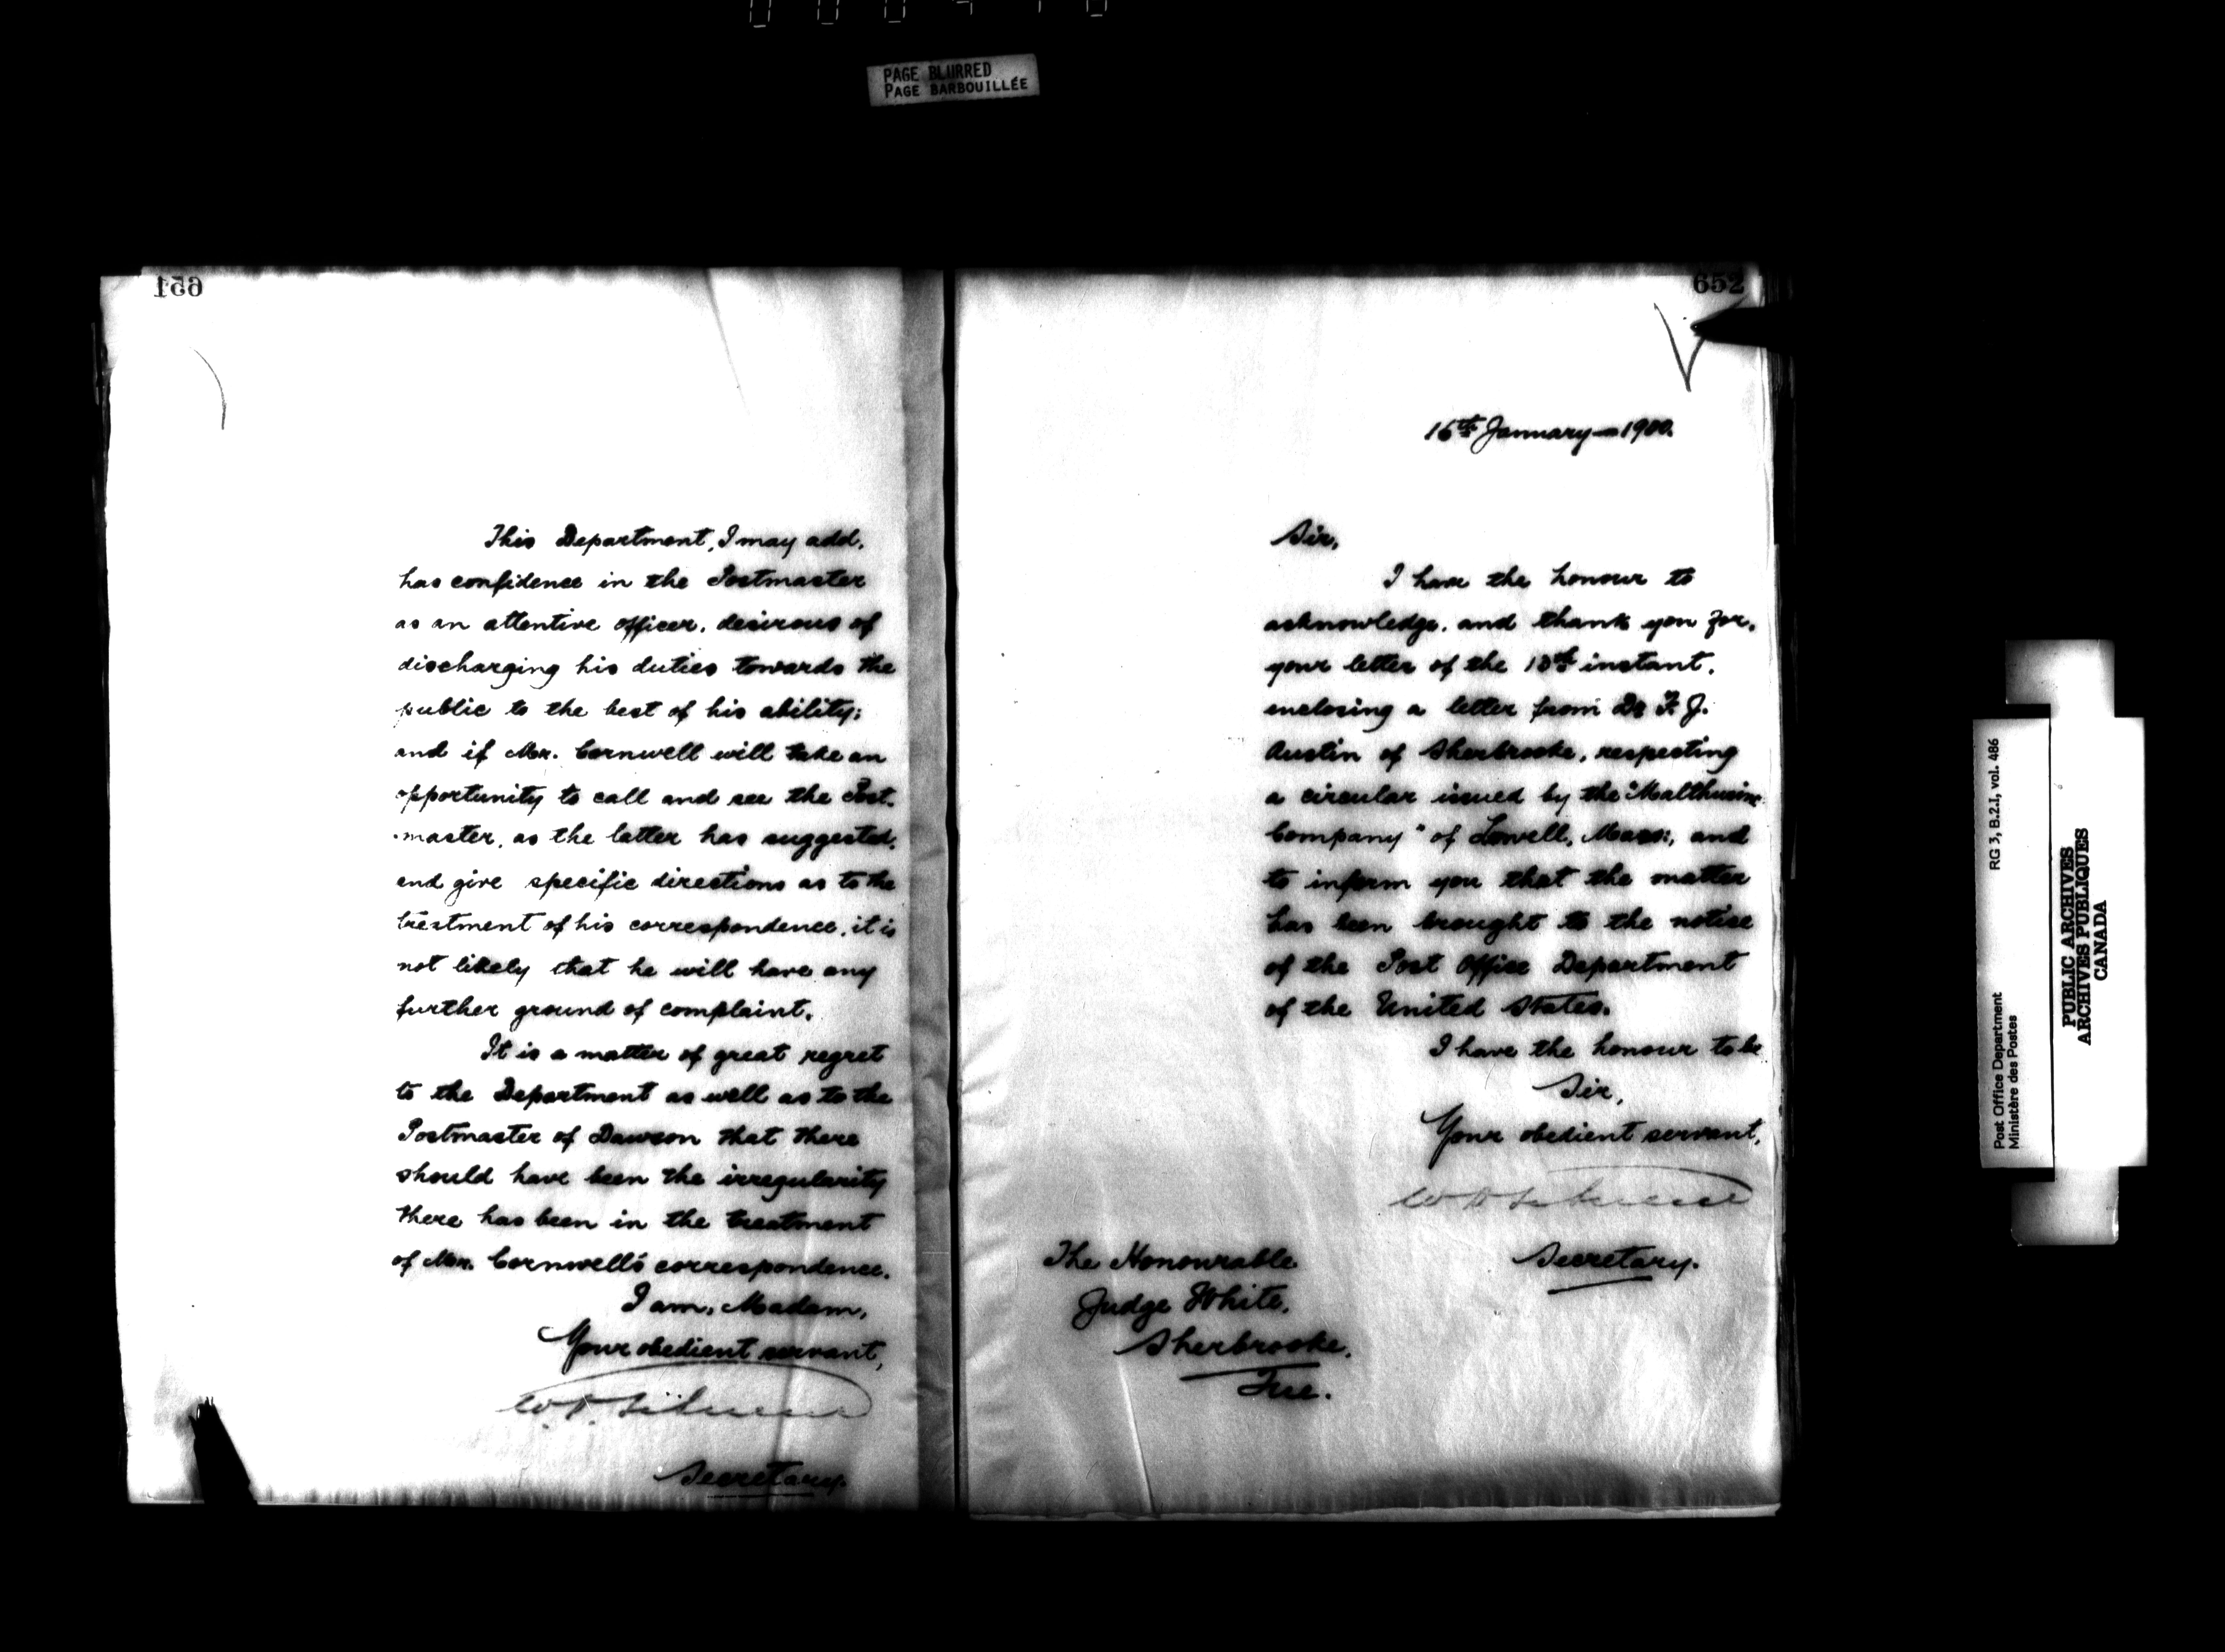 PAGE BLURRED
PAGE BARBOUILLÉE
651
This Department, I may add,
has confidence in the Postmaster
as an attentive officer, desirous of
discharging his duties towards the
public to the best of his ability;
and if Mr. Cornwell will take an
opportunity to call and see the Post-
master, as the latter has suggested,
and give specific directions as to the
treatment of his correspondence, it is
not likely that he will have any
further ground of complaint.
It is a matter of great regret
to the Department as well as to the
Postmaster of Dawson that there
should have been the irregularity
there has been in the treatment
of Mr. Cornwell's correspondence.
I am, Madam,
Your obedient servant,
Secretary.
652
16th January—1900.
Sir,
I have the honour to
acknowledge, and thank you for,
your letter of the 13th instant,
enclosing a letter from Dr F. J.
Austin of Sherbrooke, respecting
a circular issued by the "Malthusine
Company" of Lowell, Mass:, and
to inform you that the matter
has been brought to the notice
of the Post Office Department
of the United States.
I have the honour to be
Sir,
Your obedient servant,
Secretary.
The Honourable
Judge White,
Sherbrooke,
Que.
Post Office Department RG 3, B.2.I, vol. 486
Ministère des Postes
PUBLIC ARCHIVES
ARCHIVES PUBLIQUES
CANADA